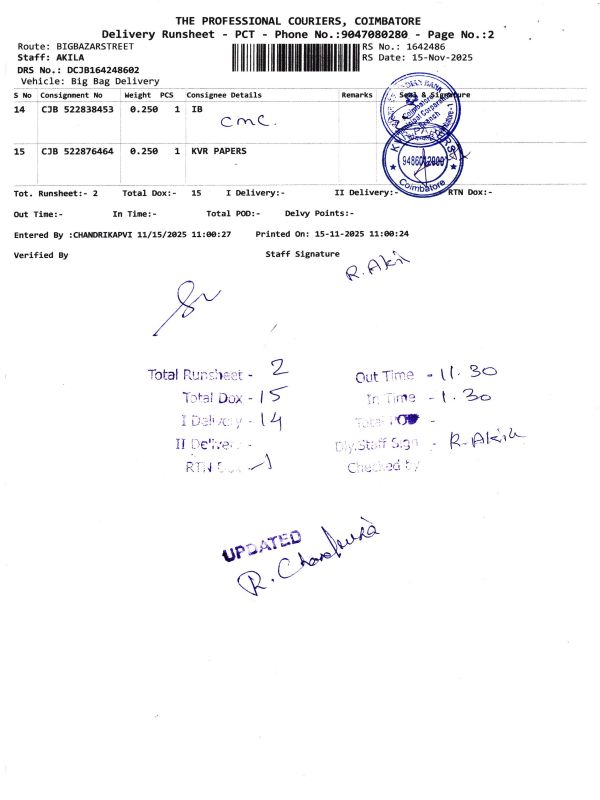 THE PROFESSIONAL COURIERS, COIMBATORE
Delivery Runsheet - PCT - Phone No.:9047080280 - Page No.:2
Route: BIGBAZARSTREET RS No.: 1642486
Staff: AKILA RS Date: 15-Nov-2025
DRS No.: DCJB164248602
Vehicle: Big Bag Delivery
S No Consignment No Weight PCS Consignee Details Remarks Seal & Signature
14 CJB 522838453 0.250 1 IB
CMC.
15 CJB 522876464 0.250 1 KVR PAPERS
Coimbatore
Tot. Runsheet:- 2 Total Dox:- 15 I Delivery:- II Delivery:- RTN Dox:-
Out Time:- In Time:- Total POD:- Delvy Points:-
Entered By :CHANDRIKAPVI 11/15/2025 11:00:27 Printed On: 15-11-2025 11:00:24
Verified By Staff Signature
R. Akil
Total Runsheet - 2 Out Time - 11.30
Total Dox - 15 In Time - 1.30
I Delivery - 14 Total -
II Delivery - Dly.Staff Sign - R. Akila
RTN - 1 Checked by
UPDATED